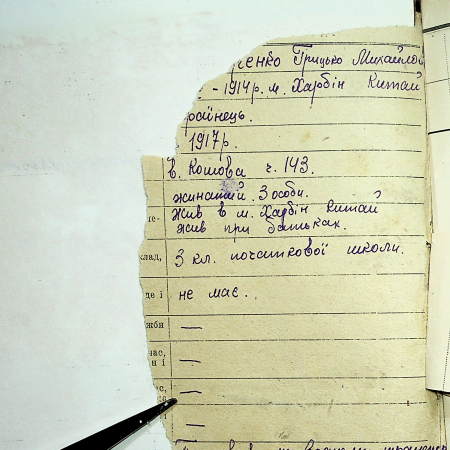 ченко Грицько Михайло
- 1914 р. м. Харбін Китай
раїнець.
1917р.
в. Кошова ч. 143.
жинатий. 3 особи.
не-
Жив в м. Харбін Китай
жив при батьках.
клад,
3 кл. початкової школи.
де і
не має.
жби
—
час,
н і
—
ас,
—
—